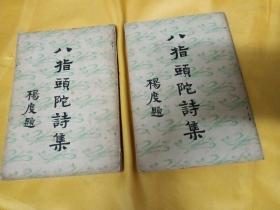 八指頭陀詩集
楊度題
八指頭陀詩集
楊度題